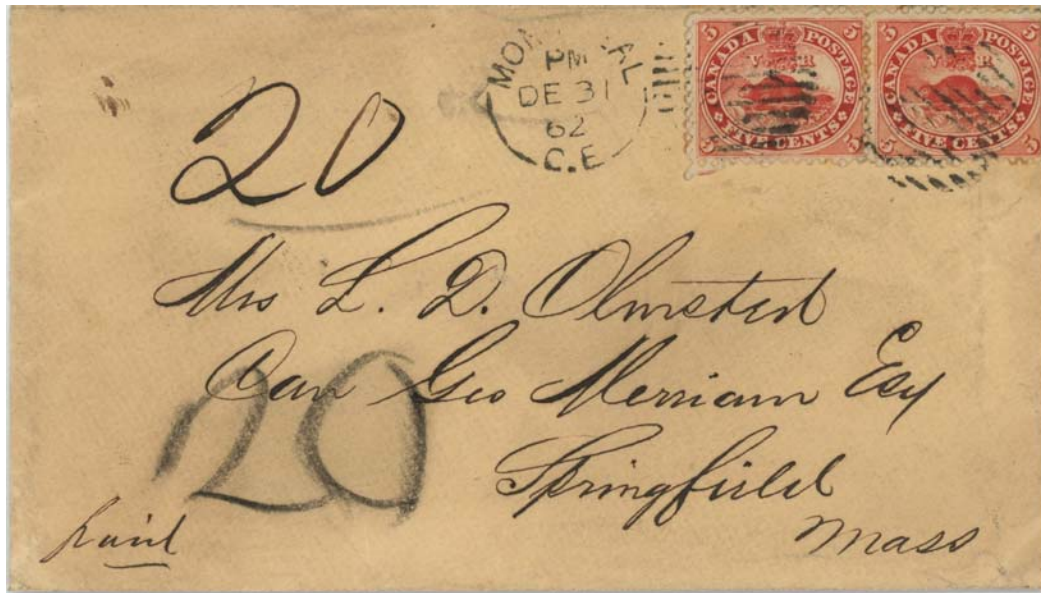 MONTREAL
PM
DE 31
62
C.E
5 CANADA POSTAGE 5
V R
5 FIVE CENTS 5
5 CANADA POSTAGE 5
V R
5 FIVE CENTS 5
20
Mrs L. D. Olmsted
Care Geo Merriam Esq
20
Springfield
Mass
paid